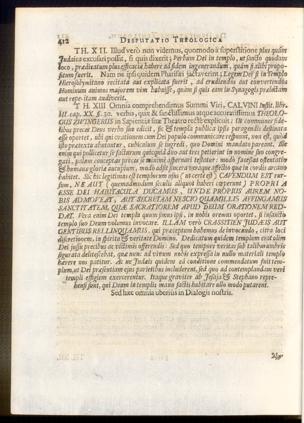 412 DISPUTATIO THEOLOGICA
TH. XII. Illud verò non videmus, quomodo à superstitione plus quàm
Judaica excusari possit, si quis dixerit; Verbum Dei in templo, ut sancto quodam
loco, prædicatum plus efficaciæ habere ad fidem ingenerandum, quàm si alibi propo-
situm fuerit. Nam ne ipsi quidem Pharisæi jactaverint; Legem Dei si in Templo
Hierosolymitano recitata aut explicata fuerit, ad erudiendos aut convertendos
hominum animos majorem vim habuisse, quàm si quis eam in Synagogis prædictam
aut repetitam audiverit.
TH. XIII Omnia comprehendimus Summi Viri, CALVINI Instit. libr.
III. cap. XX. §. 30. verbis, quæ & sanctissimus atque accuratissimus THEOLO-
GUS ZWINGERUS in Sapientiæ suæ Theatro rectè explicuit: Ut communes fi-
delibus preces Deus verbo suo edicit, sic & templa publica ipsis peragendis destinata
esse oportet, ubi qui orationem cum Dei populo communicare respuunt, non est, quod
isto prætextu abutantur, cubiculum se ingredi, quo Domini mandato pareant. Ille
enim qui pollicetur se facturum quicquid duo aut tres petierint in nomine suo congre-
gati, palàm conceptas preces se minimè aspernari testatur: modò facessat ostentatio
& humanæ gloriæ aucupium, modò adsit sincera veraque affectio quæ in cordis arcano
habitet. Sic hic legitimus est templorum usus, (ut certè est) CAVENDUM EST rur-
sum, NE AUT (quemadmodum sæculis aliquot haberi cœperunt) PROPRIA
ESSE DEI HABITACULA DUCAMUS, UNDE PROPIUS AUREM NO-
BIS ADMOVEAT, AUT SECRETAM NESCIO QUAM ILLIS AFFINGAMUS
SANCTITATEM, QUÆ SACRATIOREM APUD DEUM ORATIONEM RED-
DAT. Vera enim Dei templa quum simus ipsi, in nobis oremus oportet, si in sancto
templo suo Deum volumus invocare. ILLAM verò CRASSITIEM JUDÆIS AUT
GENTIBUS RELINQUAMUS, qui præceptum habemus de invocando, citra loci
discretionem, in spiritu & veritate Dominum. Dedicatum quidem templum erat olim
Dei jussu precibus ac victimis offerendis: Sed quo tempore veritas sub talibus umbris
figurata delitescebat, quæ nunc ad vivum nobis expressa in nullo materiali templo
hærere nos patitur. Ac ne Judæis quidem eâ conditione commendatum fuit tem-
plum, ut Dei præsentiam ejus parietibus includerent, sed quo ad contemplandam veri
templi effigiem exercerentur. Itaque graviter ab Jesaia & Stephano repre-
hensi sunt, qui Deum in templis manu factis habitare ullo modo putarent.
Sed hæc omnia uberius in Dialogis nostris.